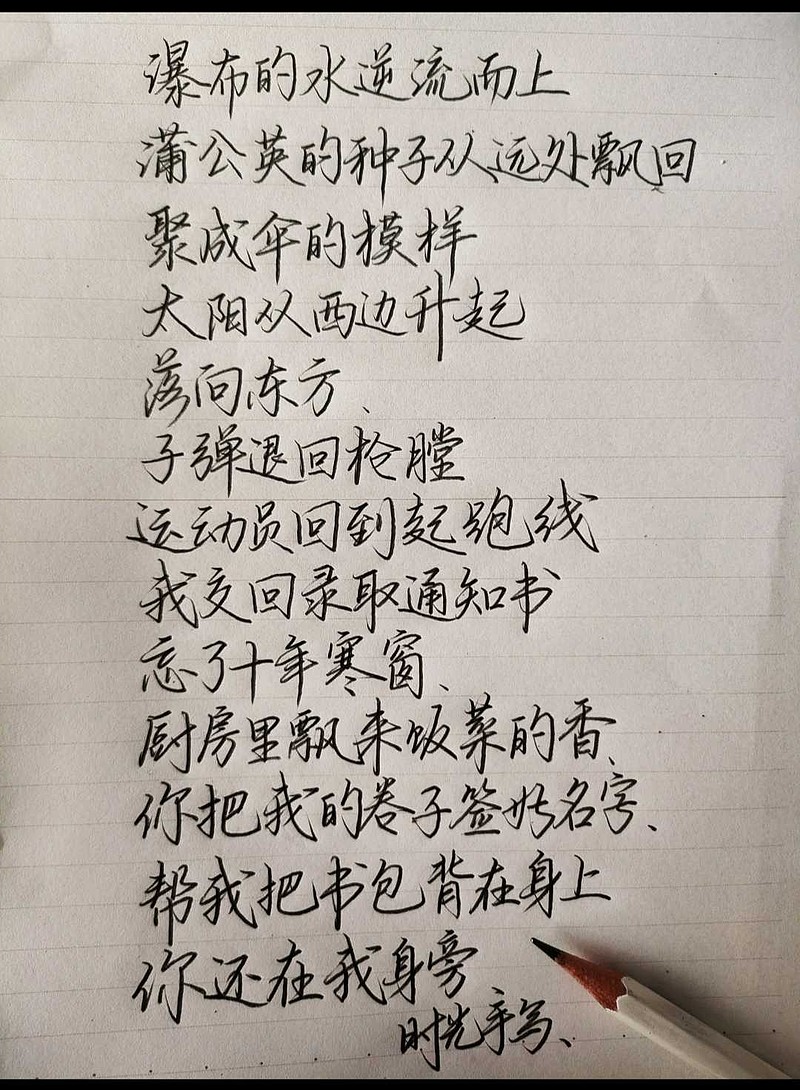 瀑布的水逆流而上
蒲公英的种子从远处飘回
聚成伞的模样
太阳从西边升起
落向东方、
子弹退回枪膛
运动员回到起跑线
我交回录取通知书
忘了十年寒窗、
厨房里飘来饭菜的香、
你把我的卷子签好名字、
帮我把书包背在身上
你还在我身旁
时光手写、